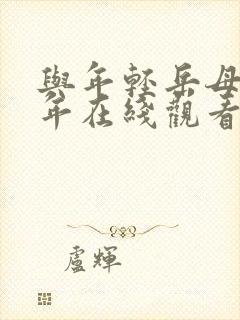 與年輕岳母
年在綫觀看
盧輝